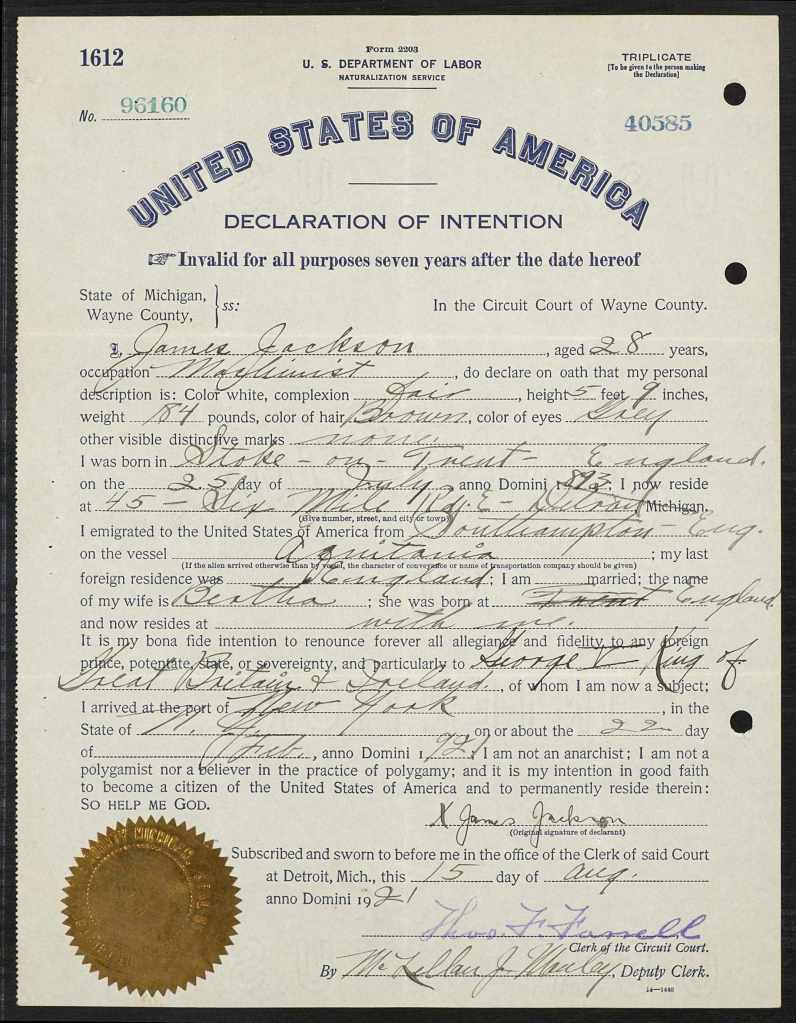 1612
Form 2203
U. S. DEPARTMENT OF LABOR
NATURALIZATION SERVICE
TRIPLICATE
[To be given to the person making
the Declaration]
No. 96160
40585
UNITED STATES OF AMERICA
DECLARATION OF INTENTION
☞ Invalid for all purposes seven years after the date hereof
State of Michigan,
Wayne County, } ss:
In the Circuit Court of Wayne County.
I, James Jackson, aged 28 years,
occupation Machinist, do declare on oath that my personal
description is: Color white, complexion Fair, height 5 feet 9 inches,
weight 184 pounds, color of hair Brown, color of eyes Grey
other visible distinctive marks none.
I was born in Stoke-on-Trent- England.
on the 25 day of July, anno Domini 1893; I now reside
at 45 - Six Mile Rd. E - Detroit, Michigan.
(Give number, street, and city or town)
I emigrated to the United States of America from Southampton - Eng.
on the vessel Aquitania; my last
(If the alien arrived otherwise than by vessel, the character of conveyance or name of transportation company should be given)
foreign residence was England; I am married; the name
of my wife is Bertha; she was born at Trent England
and now resides at with me.
It is my bona fide intention to renounce forever all allegiance and fidelity to any foreign
prince, potentate, state, or sovereignty, and particularly to George V King of
Great Britain & Ireland, of whom I am now a subject;
I arrived at the port of New York, in the
State of N. Y. on or about the 22 day
of Feb., anno Domini 1921; I am not an anarchist; I am not a
polygamist nor a believer in the practice of polygamy; and it is my intention in good faith
to become a citizen of the United States of America and to permanently reside therein:
SO HELP ME GOD.
X James Jackson
(Original signature of declarant)
Subscribed and sworn to before me in the office of the Clerk of said Court
at Detroit, Mich., this 15 day of Aug.
anno Domini 1921
Thos F. Farrell
Clerk of the Circuit Court.
By McKellar J. Manley, Deputy Clerk.
14-1440